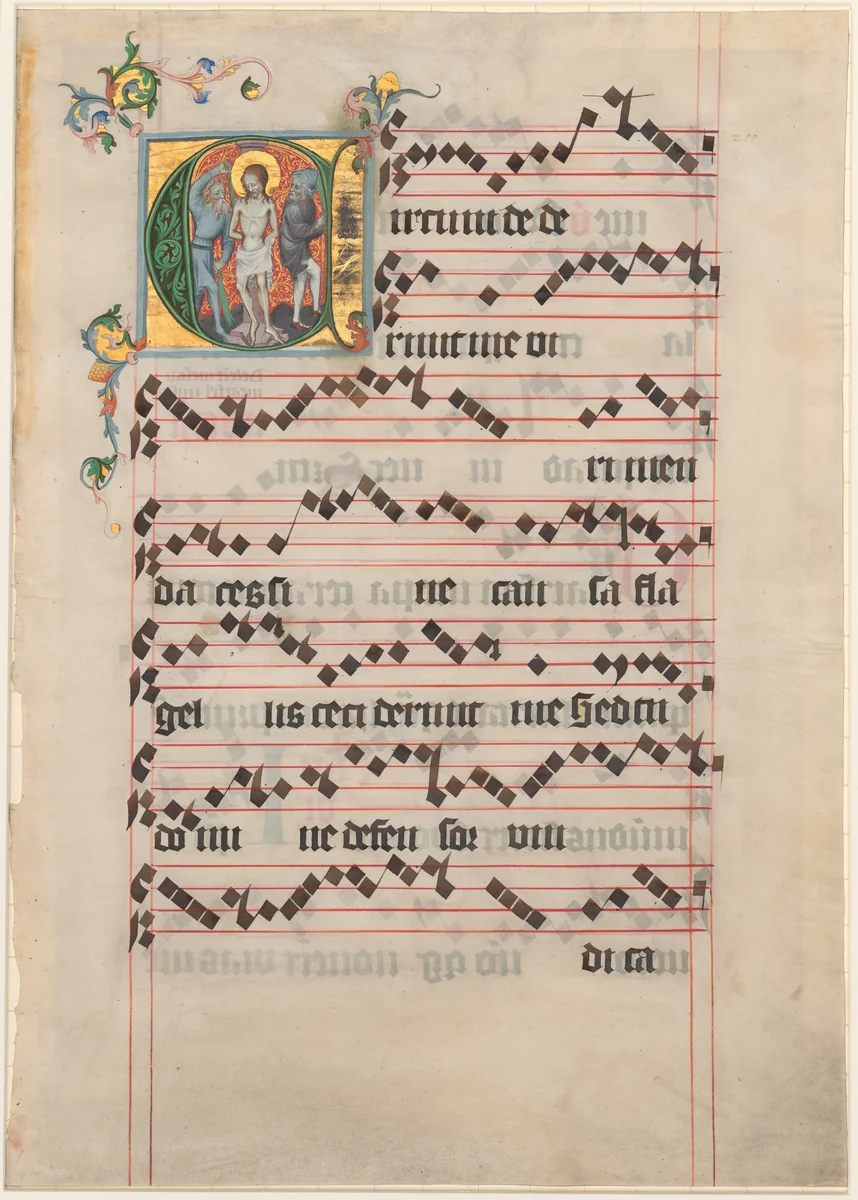 Circum de de
runt me vi
ri men
da ces si ne cau sa fla
gel lis ceci derunt me Sed tu
do mi ne defen sor vin
di ca